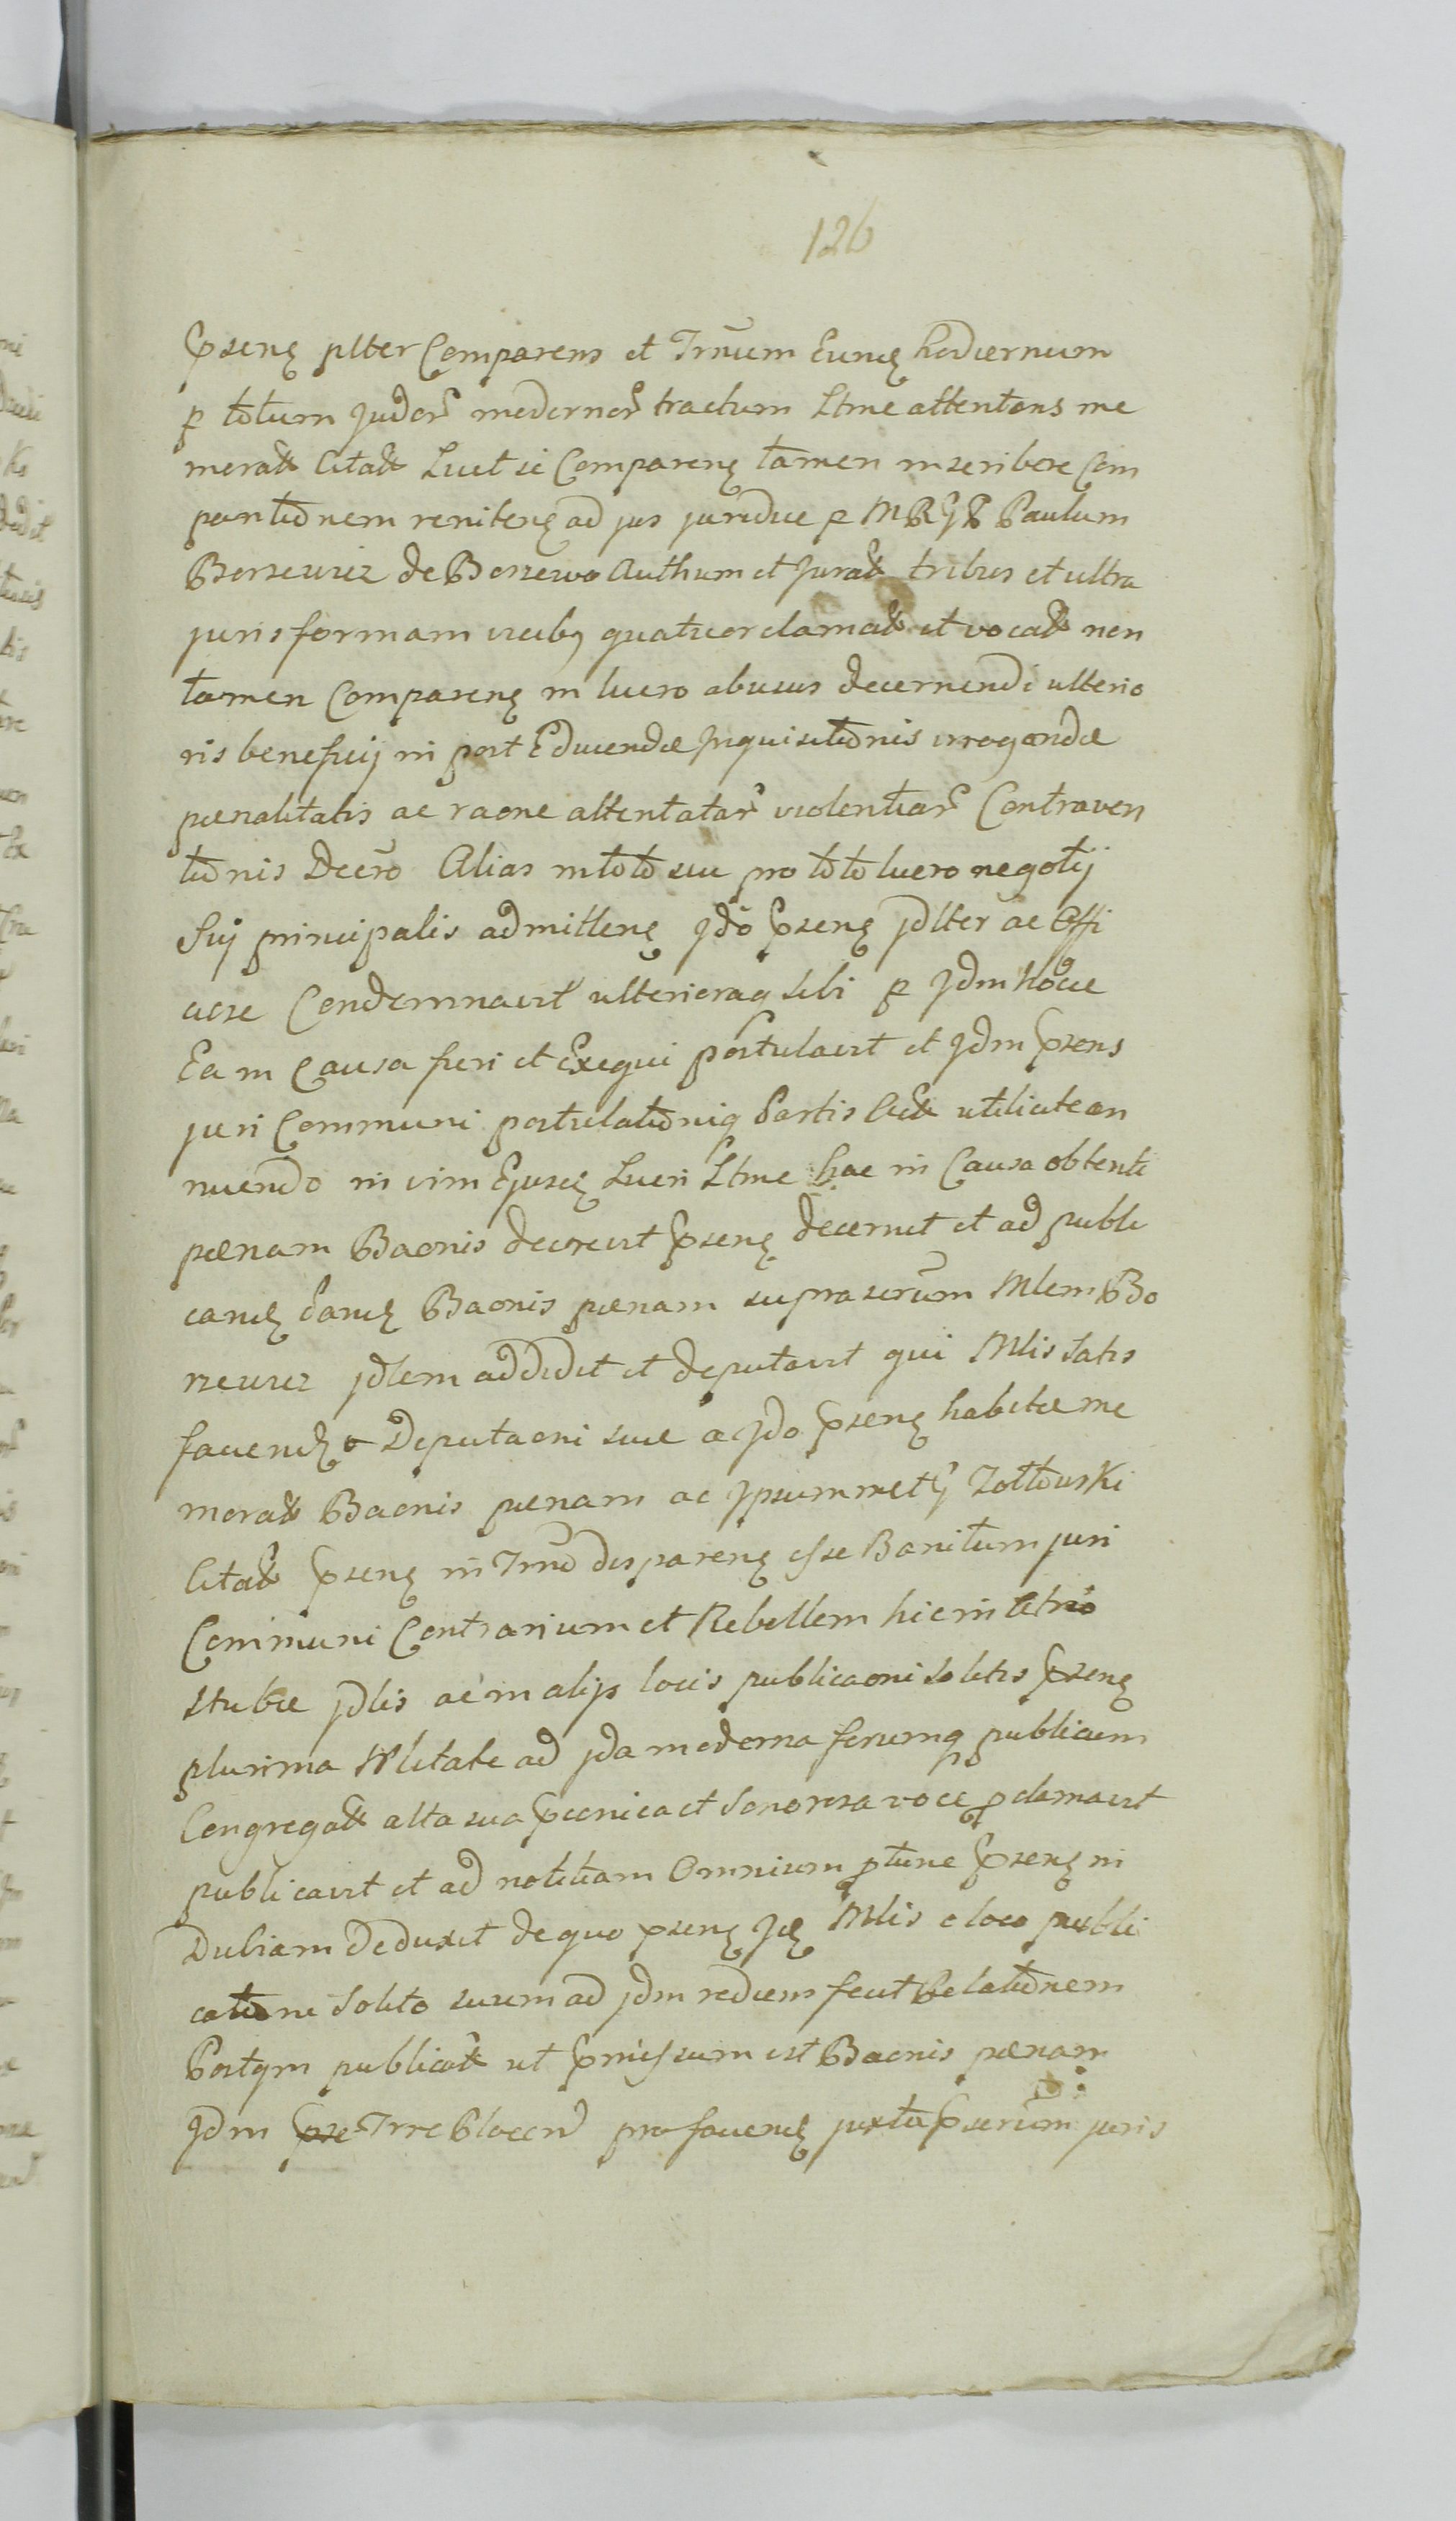 126
Prsens pltter Comparens et Trnum Eund hodiernum
p totum Judor modernor tractum Ltme attentans me
morat Citat Licet se Comparens tamen inscribere Com
paritionem renitens ad jus juridice p MRGP Paulum
Borzewicz de Borzewo Authum et Jurat tribus et ultra
juris formam vicibus quatuor clamat et vocat non
tamen Comparens in lucro abusus decernendi ulterio
ris beneficij in post Educendæ Inquisitionis irrogandæ
pœnalitatis ac raone attentatar violentiar Contraven
tionis Decro Alias in toto sui pro toto lucro negotij
Sui principalis admittens Jdo Prsens jdlter ac Effi
Condemnavit ulterioraq sibi p Jdm hocce
Ea in Causa fieri et Exequi postulavit et Jdm Prsens
juri Communi postulationiq Partis Citæ utiliter an
nuendo in vim Ejusd Lucri Ltme hac in Causa obtenti
pœnam Baonis decrevit Prsens decernit et ad publi
cand eand Baonis pœnam suprascrum Mlem Bo
rzewicz jdlem addidit et deputavit qui Mlis Satis
faciend Deputaoni suæ a Jdo Prsens habitæ me
morat Baonis pœnam ac Ipsummet G Zołtowski
Citat Prsens in Trno disparens esse Banitum juri
Communi Contrarium et Rebellem hic in
stubæ jdlis ac in alijs locis publicaoni solitis Prsens
plurima Nbilitate ad jda moderna forumq publicum
Congregat alta sua Præconica et Sonorosa voce proclamavit
publicavit et ad notitiam Omnium ptune Prsens in
Dubiam Deduxit de quo prsens Id Mlis e loco publi
cationi Solito suum ad jdm rediens fecit Relationem
Postqm publicat ut Præmissum est Baonis pœnam
Jdm Irre blocend pro faciend juxta Prscrum juris